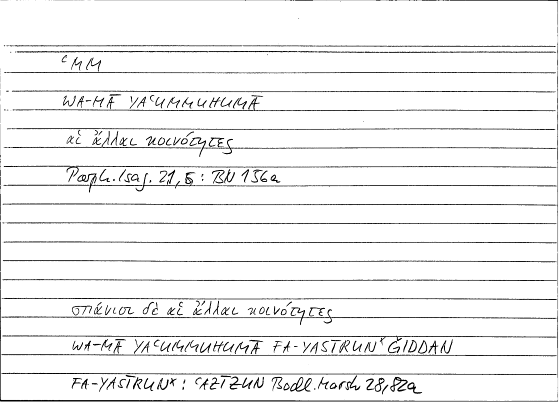 ʿMM
WA-MĀ YAʿUMMUHUMĀ
αἱ ἄλλαι κοινότητες
Porph. Isag. 21, 5 : BN 156a
σπάνιοι δὲ αἱ ἄλλαι κοινότητες
WA-MĀ YAʿUMMUHUMĀ FA-YASTRUNˣ ǦIDDAN
FA-YASTRUNˣ : ʿAZĪZUN Bodl. Marsh 28,82a